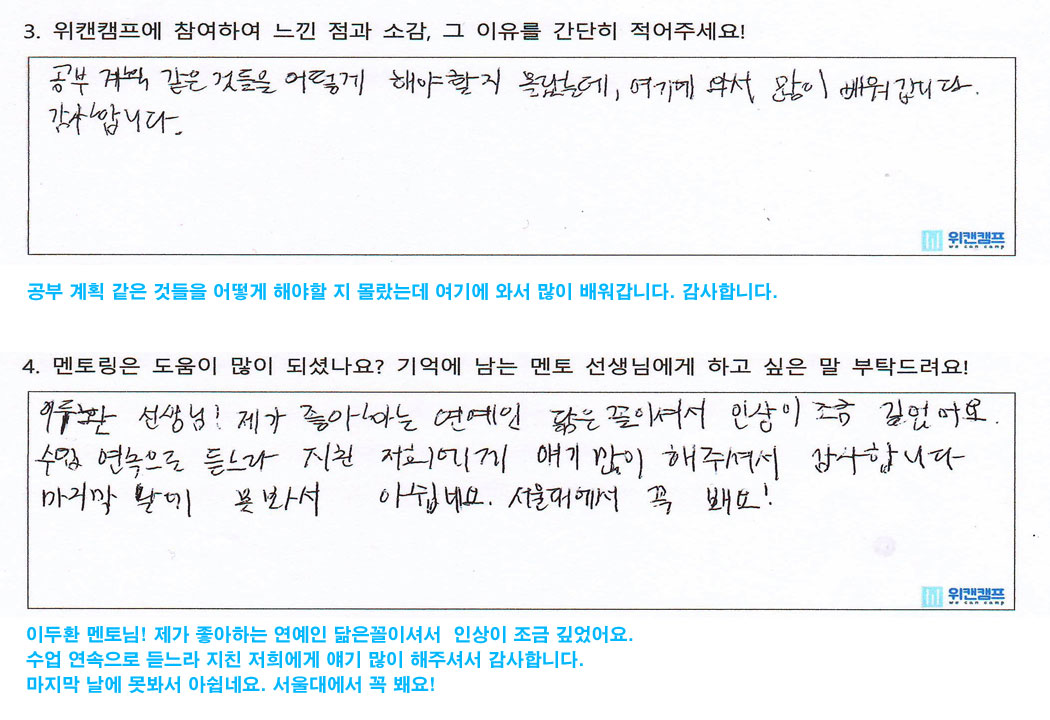 3. 위캔캠프에 참여하여 느낀 점과 소감, 그 이유를 간단히 적어주세요!
공부 계획 같은 것들을 어떻게 해야할지 몰랐는데, 여기에 와서 많이 배워갑니다.
감사합니다.
위캔캠프
we can camp
공부 계획 같은 것들을 어떻게 해야할 지 몰랐는데 여기에 와서 많이 배워갑니다. 감사합니다.
4. 멘토링은 도움이 많이 되셨나요? 기억에 남는 멘토 선생님에게 하고 싶은 말 부탁드려요!
이두환 선생님! 제가 좋아하는 연예인 닮은꼴이셔서 인상이 조금 깊었어요.
수업 연속으로 듣느라 지친 저희에게 얘기 많이 해주셔서 감사합니다
마지막 날에 못봐서 아쉽네요. 서울대에서 꼭 봬요!
위캔캠프
we can camp
이두환 멘토님! 제가 좋아하는 연예인 닮은꼴이셔서 인상이 조금 깊었어요.
수업 연속으로 듣느라 지친 저희에게 얘기 많이 해주셔서 감사합니다.
마지막 날에 못봐서 아쉽네요. 서울대에서 꼭 봬요!